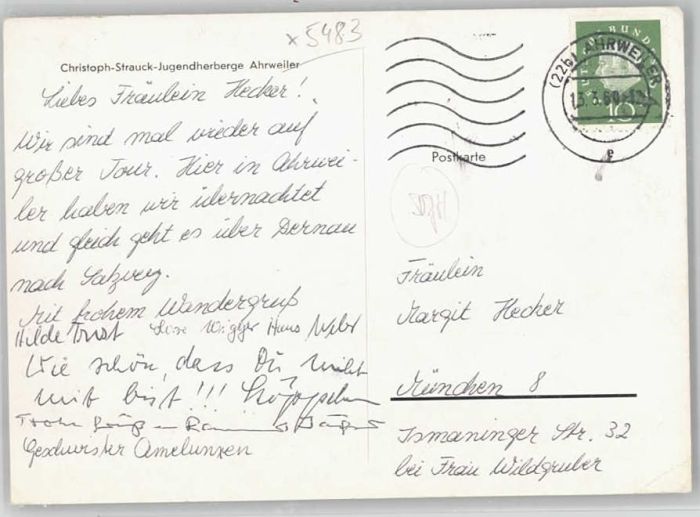 x5483
Christoph-Strauck-Jugendherberge Ahrweiler
Liebes Fräulein Hecker!
Wir sind mal wieder auf
großer Tour. Hier in Ahrwei-
ler haben wir übernachtet
und gleich geht es über Dernau
nach
Mit frohem Wandergruß
Hilde Hans
Wie schön, dass Du nicht
mit bist!!!
Frohe
Geschwister Amelunxen
BUND
(22b) AHRWEILER
13.3.60
10
e
Postkarte
Fräulein
Margit Hecker
München 8
Ismaninger Str. 32
bei Frau Wildgruber